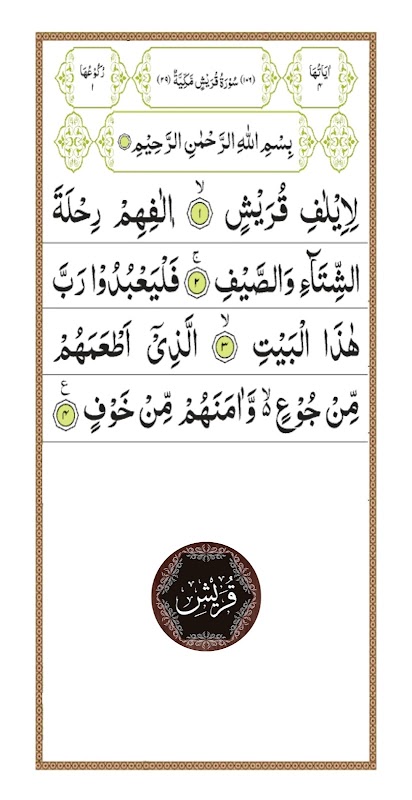 اٰیَاتُهَا ۴ (۱۰۶) سُوْرَةُ قُرَیْشٍ مَّکِّیَّةٌ (۲۹) رُکُوْعُهَا ۱
بِسْمِ اللّٰهِ الرَّحْمٰنِ الرَّحِیْمِ
لِاِیْلٰفِ قُرَیْشٍ ۙ۱ اٖلٰفِهِمْ رِحْلَةَ
الشِّتَآءِ وَالصَّیْفِ ۚ۲ فَلْیَعْبُدُوْا رَبَّ
هٰذَا الْبَیْتِ ۙ۳ الَّذِیْۤ اَطْعَمَهُمْ
مِّنْ جُوْعٍ ۙ۬ وَّاٰمَنَهُمْ مِّنْ خَوْفٍ ۴ ع
قُرَیْشٍ